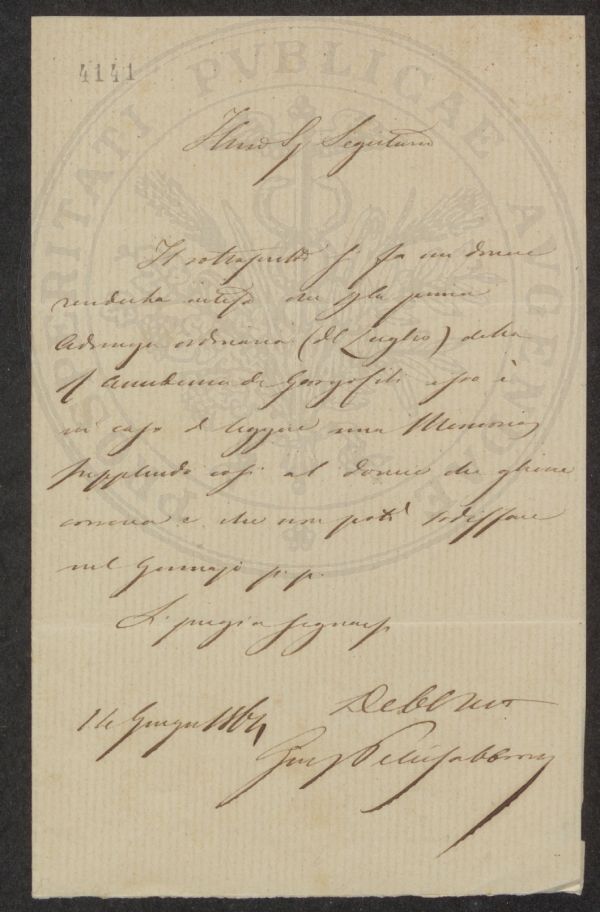 4141
PROSPERITATI PVBLICAE AVGENDAE
Illmo Sig Segretario
Il sottoscritto si fa un dovere
render la intesa che nella prima
Adunanza ordinaria (di Luglio) della
R Accademia de Georgofili esso è
in caso di leggere una Memoria
supplendo così al dovere che gliene
correva e che non poté sodisfare
nel Gennajo p. p.
Si pregia segnarsi
14 Giugno 1864
Dev